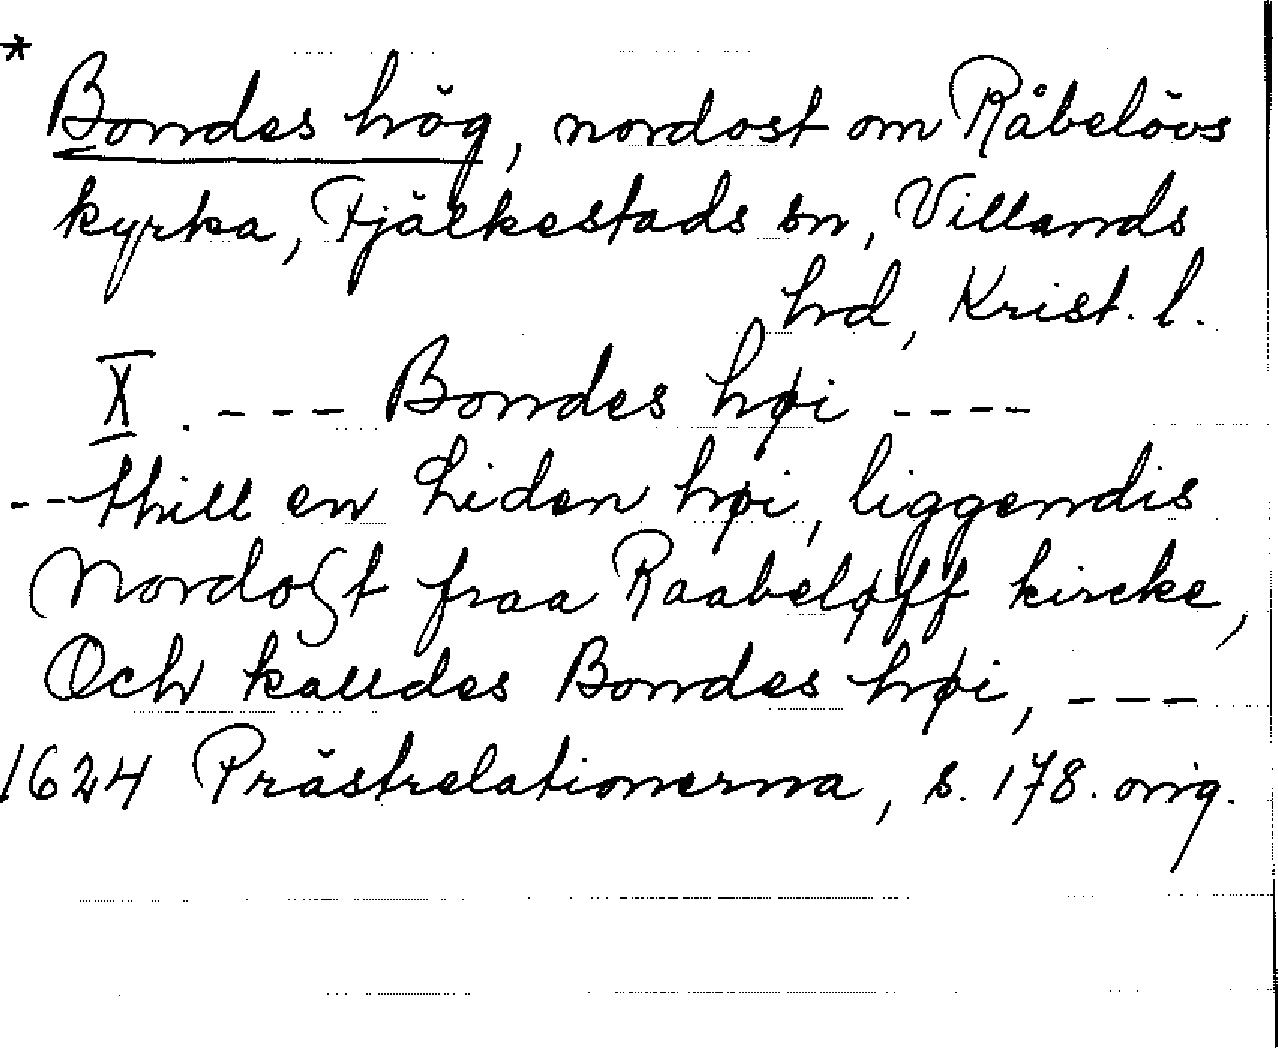 * Bondes hög, nordost om Råbelövs
kyrka, Fjälkestads sn, Villands
hrd, Krist. l.
X. --- Bondes høi ----
--thill en Liden høi, liggendis
Nordoſt fraa Raabeløff kircke,
Och kalldes Bondes høi, ---
1624 Prästrelationerna, s. 178. orig.